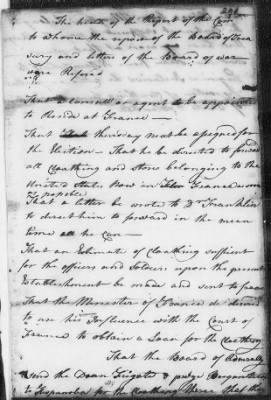 The heads of the Report of the Com
to whome the report of the Board of Trea
sury and letters of the Board of war
ware Refered
That a Consul or agent to be appointed
to Reside at France —
That thursday next be assigned for
the Election — That he be directed to forward
all Cloathing and stores belonging to the
United States Now in France as soon
as posable
That a letter be wrote to Dr Franklin
to direct him to forward in the mean
time all he Can —
That an Estimate of Cloathing suffient
for the officers and Soldiers upon the present
Establishment be made and sent to france
That the Minester of France be desired
to use his Influence with the Court of
France to obtain a Loan for the Cloathing
That the Board of Admeralty
send the Dean Frigate &
to Hispanola for the Cloathing there that the